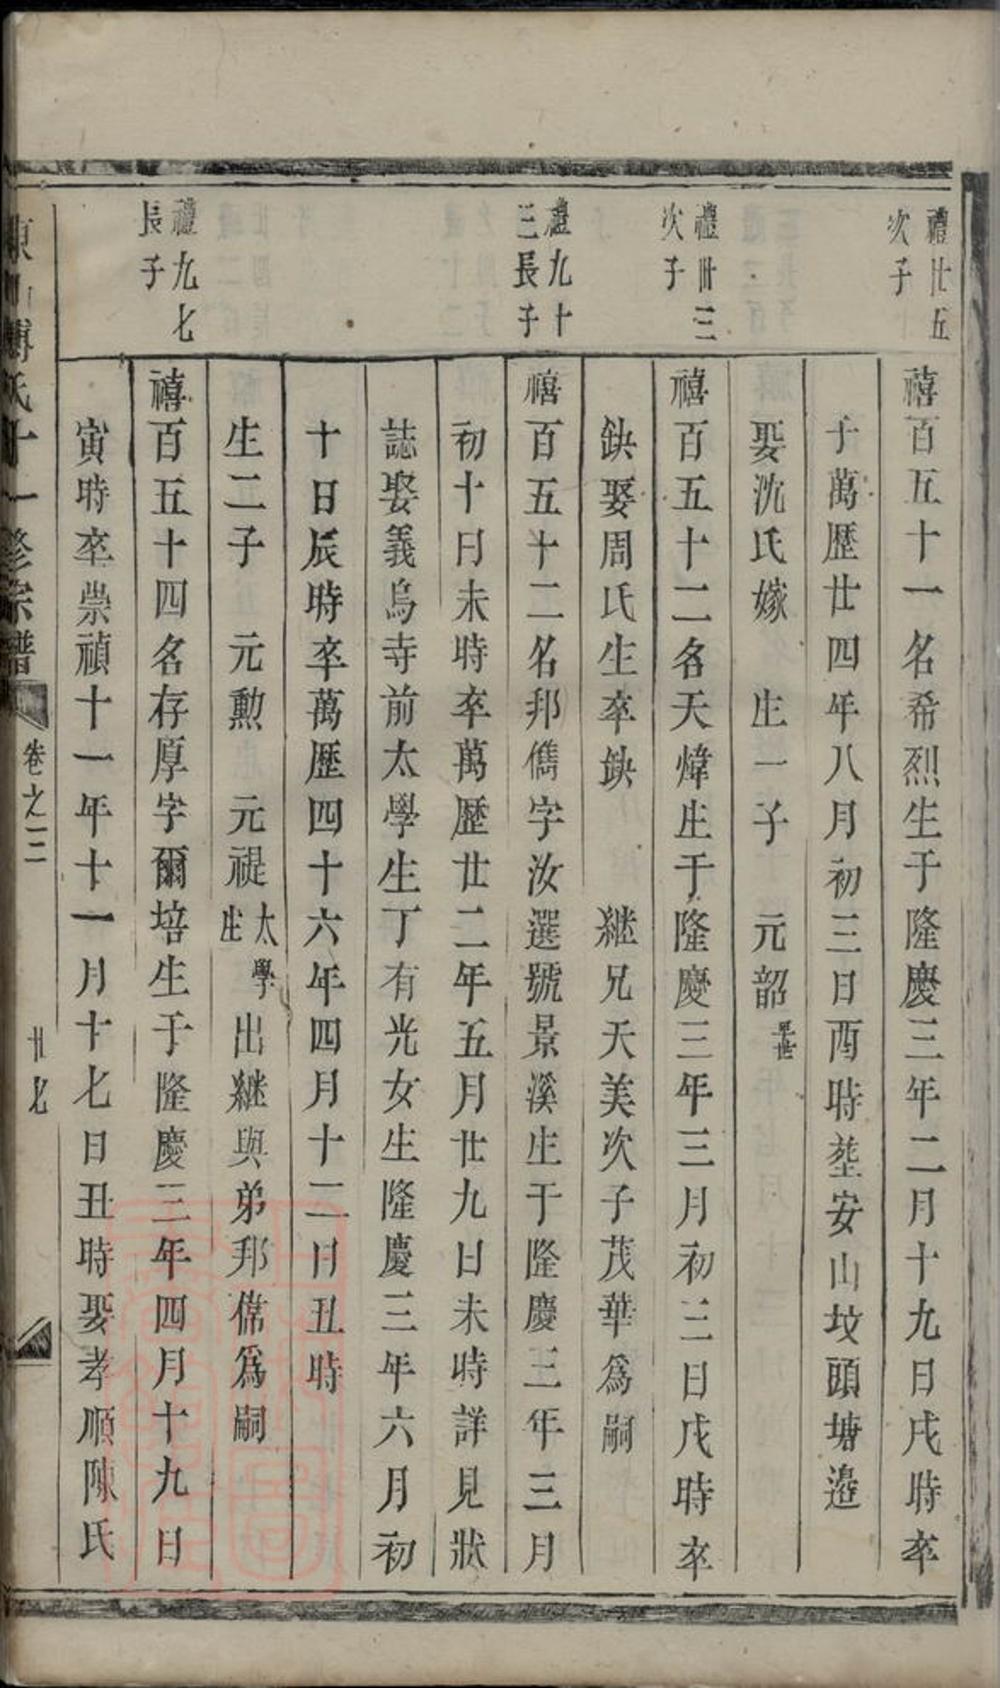 禮廿五
次子
禧百五十一名希烈生于隆慶三年二月十九日戌時卒
于萬歷廿四年八月初三日酉時塟安山坟頭塘邉
娶沈氏嫁 生一子 元韶早世
禮卅三
次子
禧百五十二名天煒生于隆慶三年三月初三日戊時卒
缺娶周氏生卒缺 継兄天美次子茂華爲嗣
禮九十
三長子
禧百五十二名邦儁字汝選號景溪生于隆慶三年三月
初十日未時卒萬歷廿二年五月廿九日未時詳見狀
誌娶義烏寺前太學生丁有光女生隆慶三年六月初
十日辰時卒萬歷四十六年四月十二日丑時
生二子 元勲 元禔太學生出継與弟邦偉爲嗣
禮九七
長子
禧百五十四名存厚字爾培生于隆慶三年四月十九日
寅時卒崇禎十一年十一月十七日丑時娶孝順陳氏
傅氏十一修宗譜
卷之三
廿七